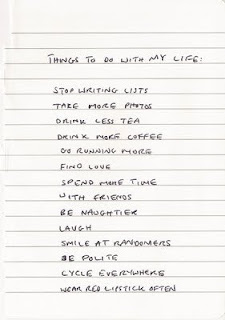 THINGS TO DO WITH MY LIFE:
STOP WRITING LISTS
TAKE MORE PHOTOS
DRINK LESS TEA
DRINK MORE COFFEE
GO RUNNING MORE
FIND LOVE
SPEND MORE TIME
WITH FRIENDS
BE NAUGHTIER
LAUGH
SMILE AT RANDOMERS
BE POLITE
CYCLE EVERYWHERE
WEAR RED LIPSTICK OFTEN